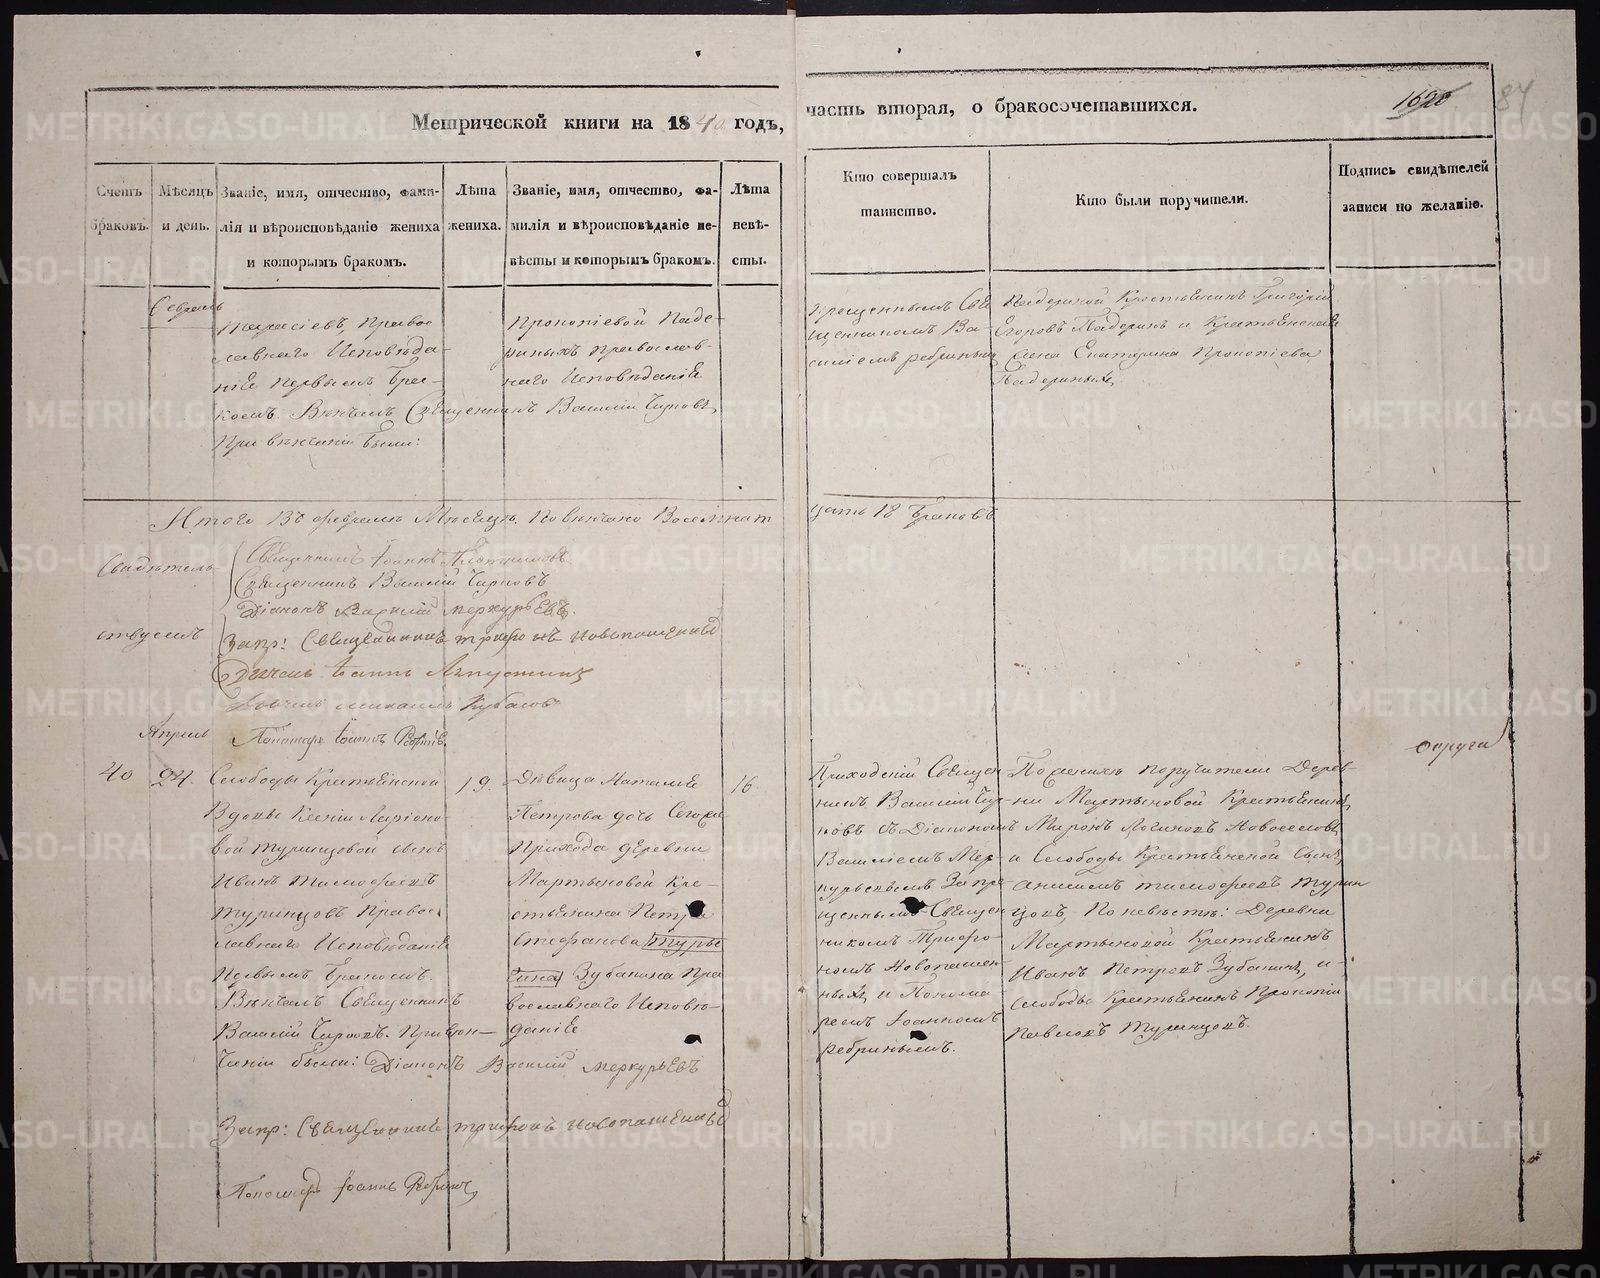 Метрической книги на 1840 годъ,
часть вторая, о бракосочетавшихся.
1620
84
Счетъ браковъ.
Мѣсяцъ и день.
Званіе, имя, отчество, фами-
лія и вѣроисповѣданіе жениха
и которымъ бракомъ.
Лѣта
жениха.
Званіе, имя, отчество, фа-
милія и вѣроисповѣданіе не-
вѣсты и которымъ бракомъ.
Лѣта
невѣ-
сты.
Кто совершалъ
таинство.
Кто были поручители.
Подпись свидѣтелей
записи по желанію.
Февраль
Тарасіевъ, Правос
лавнаго Исповѣда-
ніе первымъ бра-
комъ. Вѣнчалъ Священникъ Василій Чирковъ,
При вѣнчаніи были:
Прокопіевой Паде-
риныхъ православ-
наго Исповѣданіе
щенникомъ Ва-
силіемъ ребринымъ
Падериной Крестьянинъ Григорій
Егоровъ Падеринъ и Крестьянской
Екатерина Прокопіева
Падериныхъ,
Итого Въ февралѣ Мѣсяцѣ Повѣнчано Восемнат
цать 18 Браковъ
Свидѣтель-
ствуемъ
Священникъ Іоаннъ
Священникъ Василій Чирковъ
Діаконъ Василій Меркурьевъ.
Запр: Священникъ Трифонъ Новопашенный
Дьячекъ Іоаннъ
Дьячекъ Михаилъ Кубасов
Пономарь Іоаннъ Ребринъ.
Апрѣль
округа
40
24.
Слободы Крестьянской
Вдовы Ксеніи Ларіоно-
вой Туринцовой сынъ
Иванъ Тимофеевъ
Туринцовъ Правос
лавнаго Исповѣданіе
Первымъ бракомъ.
Вѣнчалъ Священникъ
Василій Чирковъ. При вѣн-
чаніи были: Діаконъ Василій Меркурьевъ
Запр: Священникъ Трифонъ Новопашенный
Пономарь Іоаннъ Ребринъ,
19.
Дѣвица Наталіе
Петрова дочь
Прихода деревни
Мартыновой Кре-
стьянина Петра
Стефанова Туры
гина Зубакина Пра
вославнаго Исповѣ-
даніе
16.
Приходскій Священ
никъ Василій Чир-
ковъ съ Діакономъ
Василіемъ Мер-
курьевымъ Запре
щеннымъ Священ
никомъ Трифо-
номъ Новопашен-
ныхъ, и Понома
ремъ Іоанномъ
Ребринымъ.
По женихѣ поручители Дерев-
ни Мартыновой Крестьянинъ,
Миронъ Логиновъ Новоселовъ
и Слободы Крестьянской сынъ,
Анисимъ Тимофеевъ Турин
цовъ, По невѣстѣ: Деревни
Мартыновой Крестьянинъ
Иванъ Петровъ Зубакинъ, и-
Слободы Крестьянинъ Прокопій
Павловъ Туринцовъ.